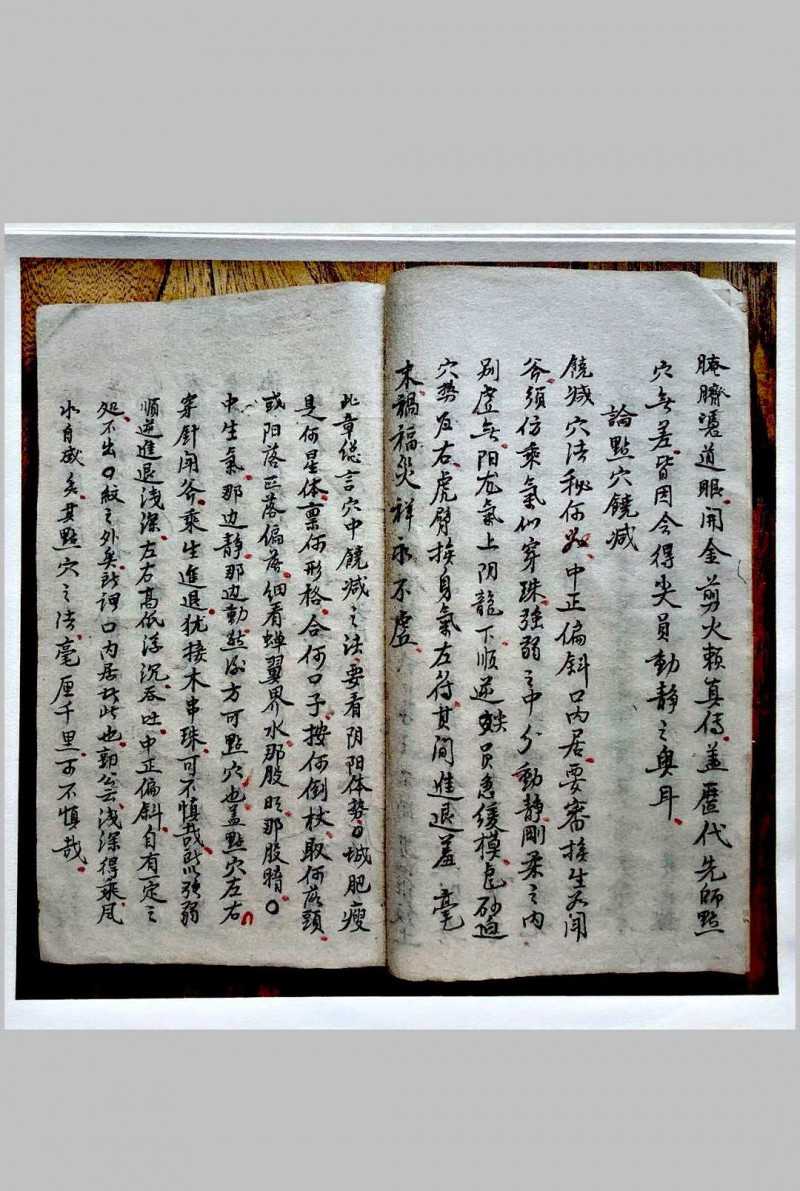 腌臢慿道眼開金剪火賴真傳盖歷代先師點
穴無差皆因会得尖員動静之奥耳
論點穴饒减
饒减穴法秘何如中正偏斜口内居要審接生𠫤開
斧須仿乗氣似穿珠強弱之中分動静剛柔之内
别虚無阳龙氣上阴龍下順逆員急缓模毛砂迫
穴势反右虎臂挨身氣左符其间進退羞毫
末禍福災祥永不虚
此章総言穴中饒减之法要看阴阳体势口城肥瘦
是何星体禀何形格合何口子按何倒杖取何落頭
或阳落正落偏落细看蝉翼界水那股明那股暗
中生氣那边静那边動然後方可點穴也盖點穴左右
穿針開斧乗生進退犹接木串珠可不慎哉所以強弱
順逆進退浅深左右高低浮沉吞吐中正偏斜自有一定之
処不出口紋之外矣所謂口内居者此也郭公云浅深得乗風
水自成矣其點穴之法毫厘千里可不慎哉